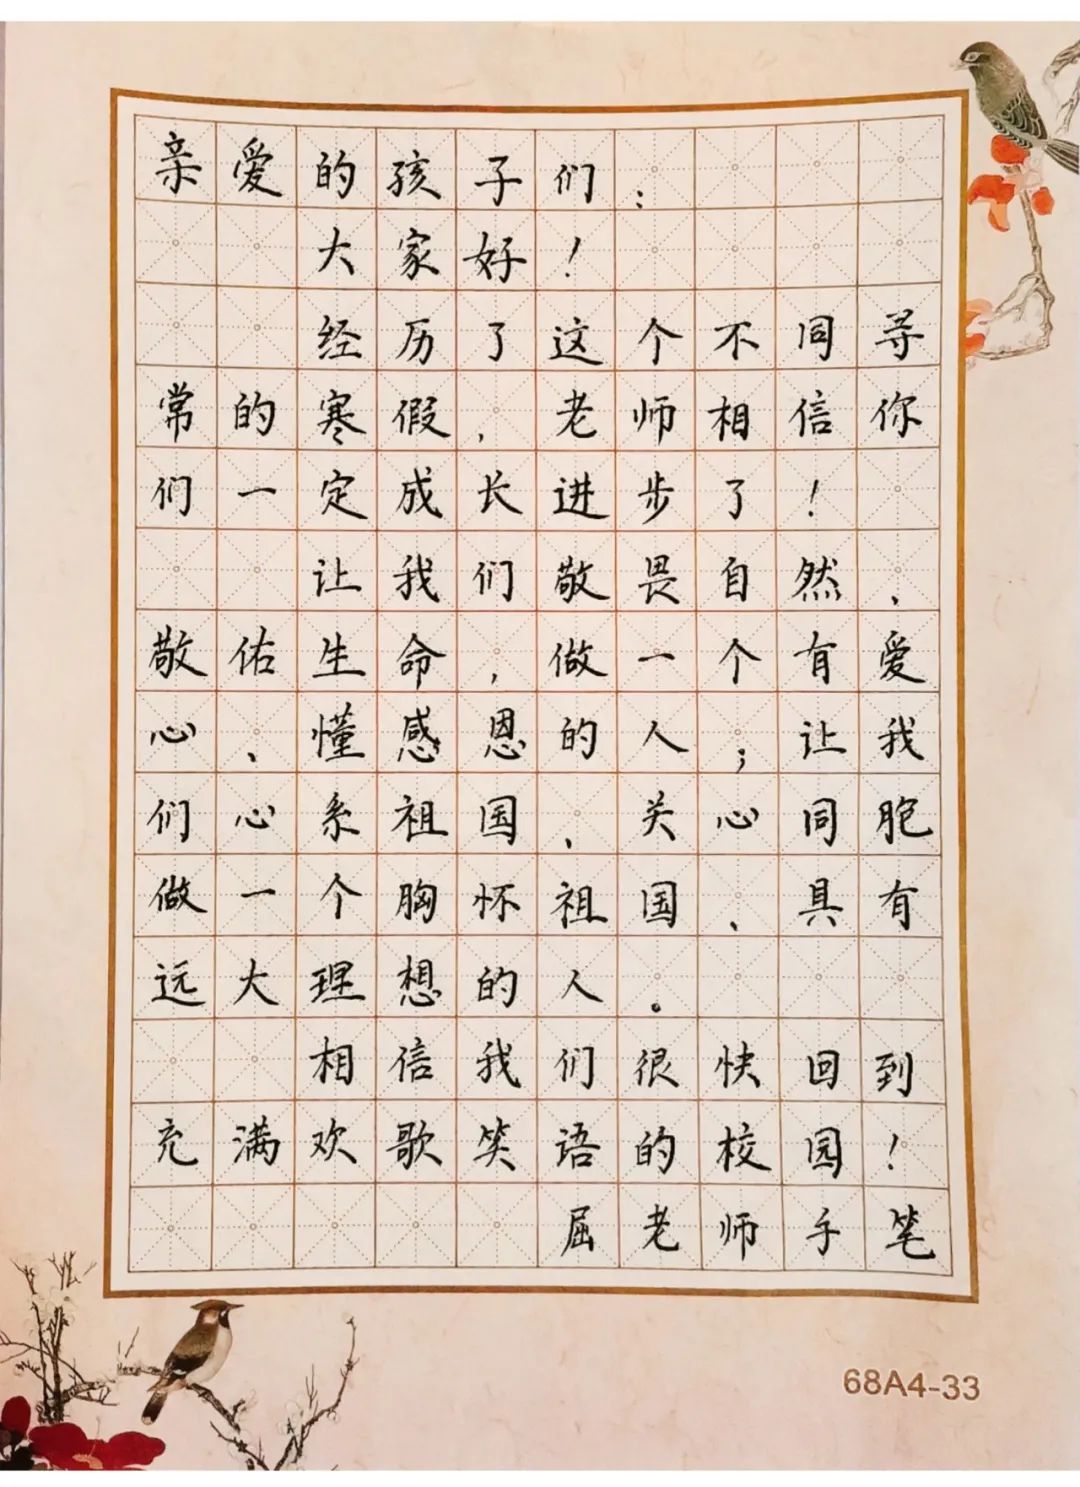 亲爱的孩子们：
大家好！
经历了这个不同寻
常的寒假，老师相信你
们一定成长进步了！
让我们敬畏自然、
敬佑生命，做一个有爱
心、懂感恩的人；让我
们心系祖国、关心同胞
做一个胸怀祖国、具有
远大理想的人。
相信我们很快回到
充满欢歌笑语的校园！
屈老师手笔
68A4-33